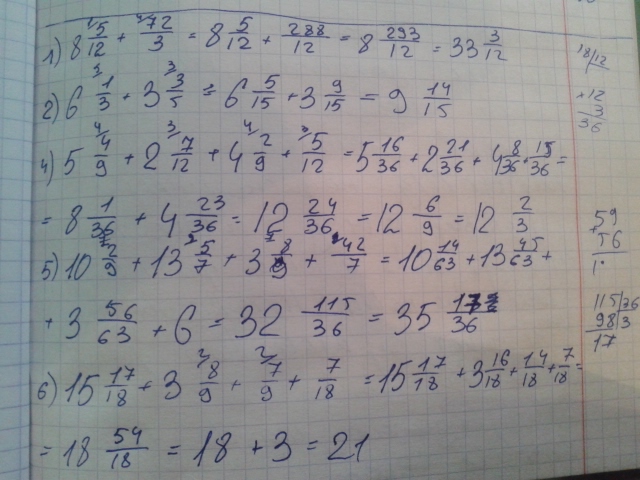 1) 8 5/12 + 72/3 = 8 5/12 + 288/12 = 8 293/12 = 33 3/12
2) 6 1/3 + 3 3/5 = 6 5/15 + 3 9/15 = 9 14/15
4) 5 4/9 + 2 7/12 + 4 2/9 + 5/12 = 5 16/36 + 2 21/36 + 4 8/36 + 15/36 =
= 8 1/36 + 4 23/36 = 12 24/36 = 12 6/9 = 12 2/3
5) 10 2/9 + 13 5/7 + 3 8/9 + 42/7 = 10 14/63 + 13 45/63 +
+ 3 56/63 + 6 = 32 115/36 = 35 /36
6) 15 17/18 + 3 8/9 + 7/9 + 7/18 = 15 17/18 + 3 16/18 + 14/18 + 7/18 =
= 18 54/18 = 18 + 3 = 21
18/12
×12
3
36
59
+56
1
115|36
98|3
17